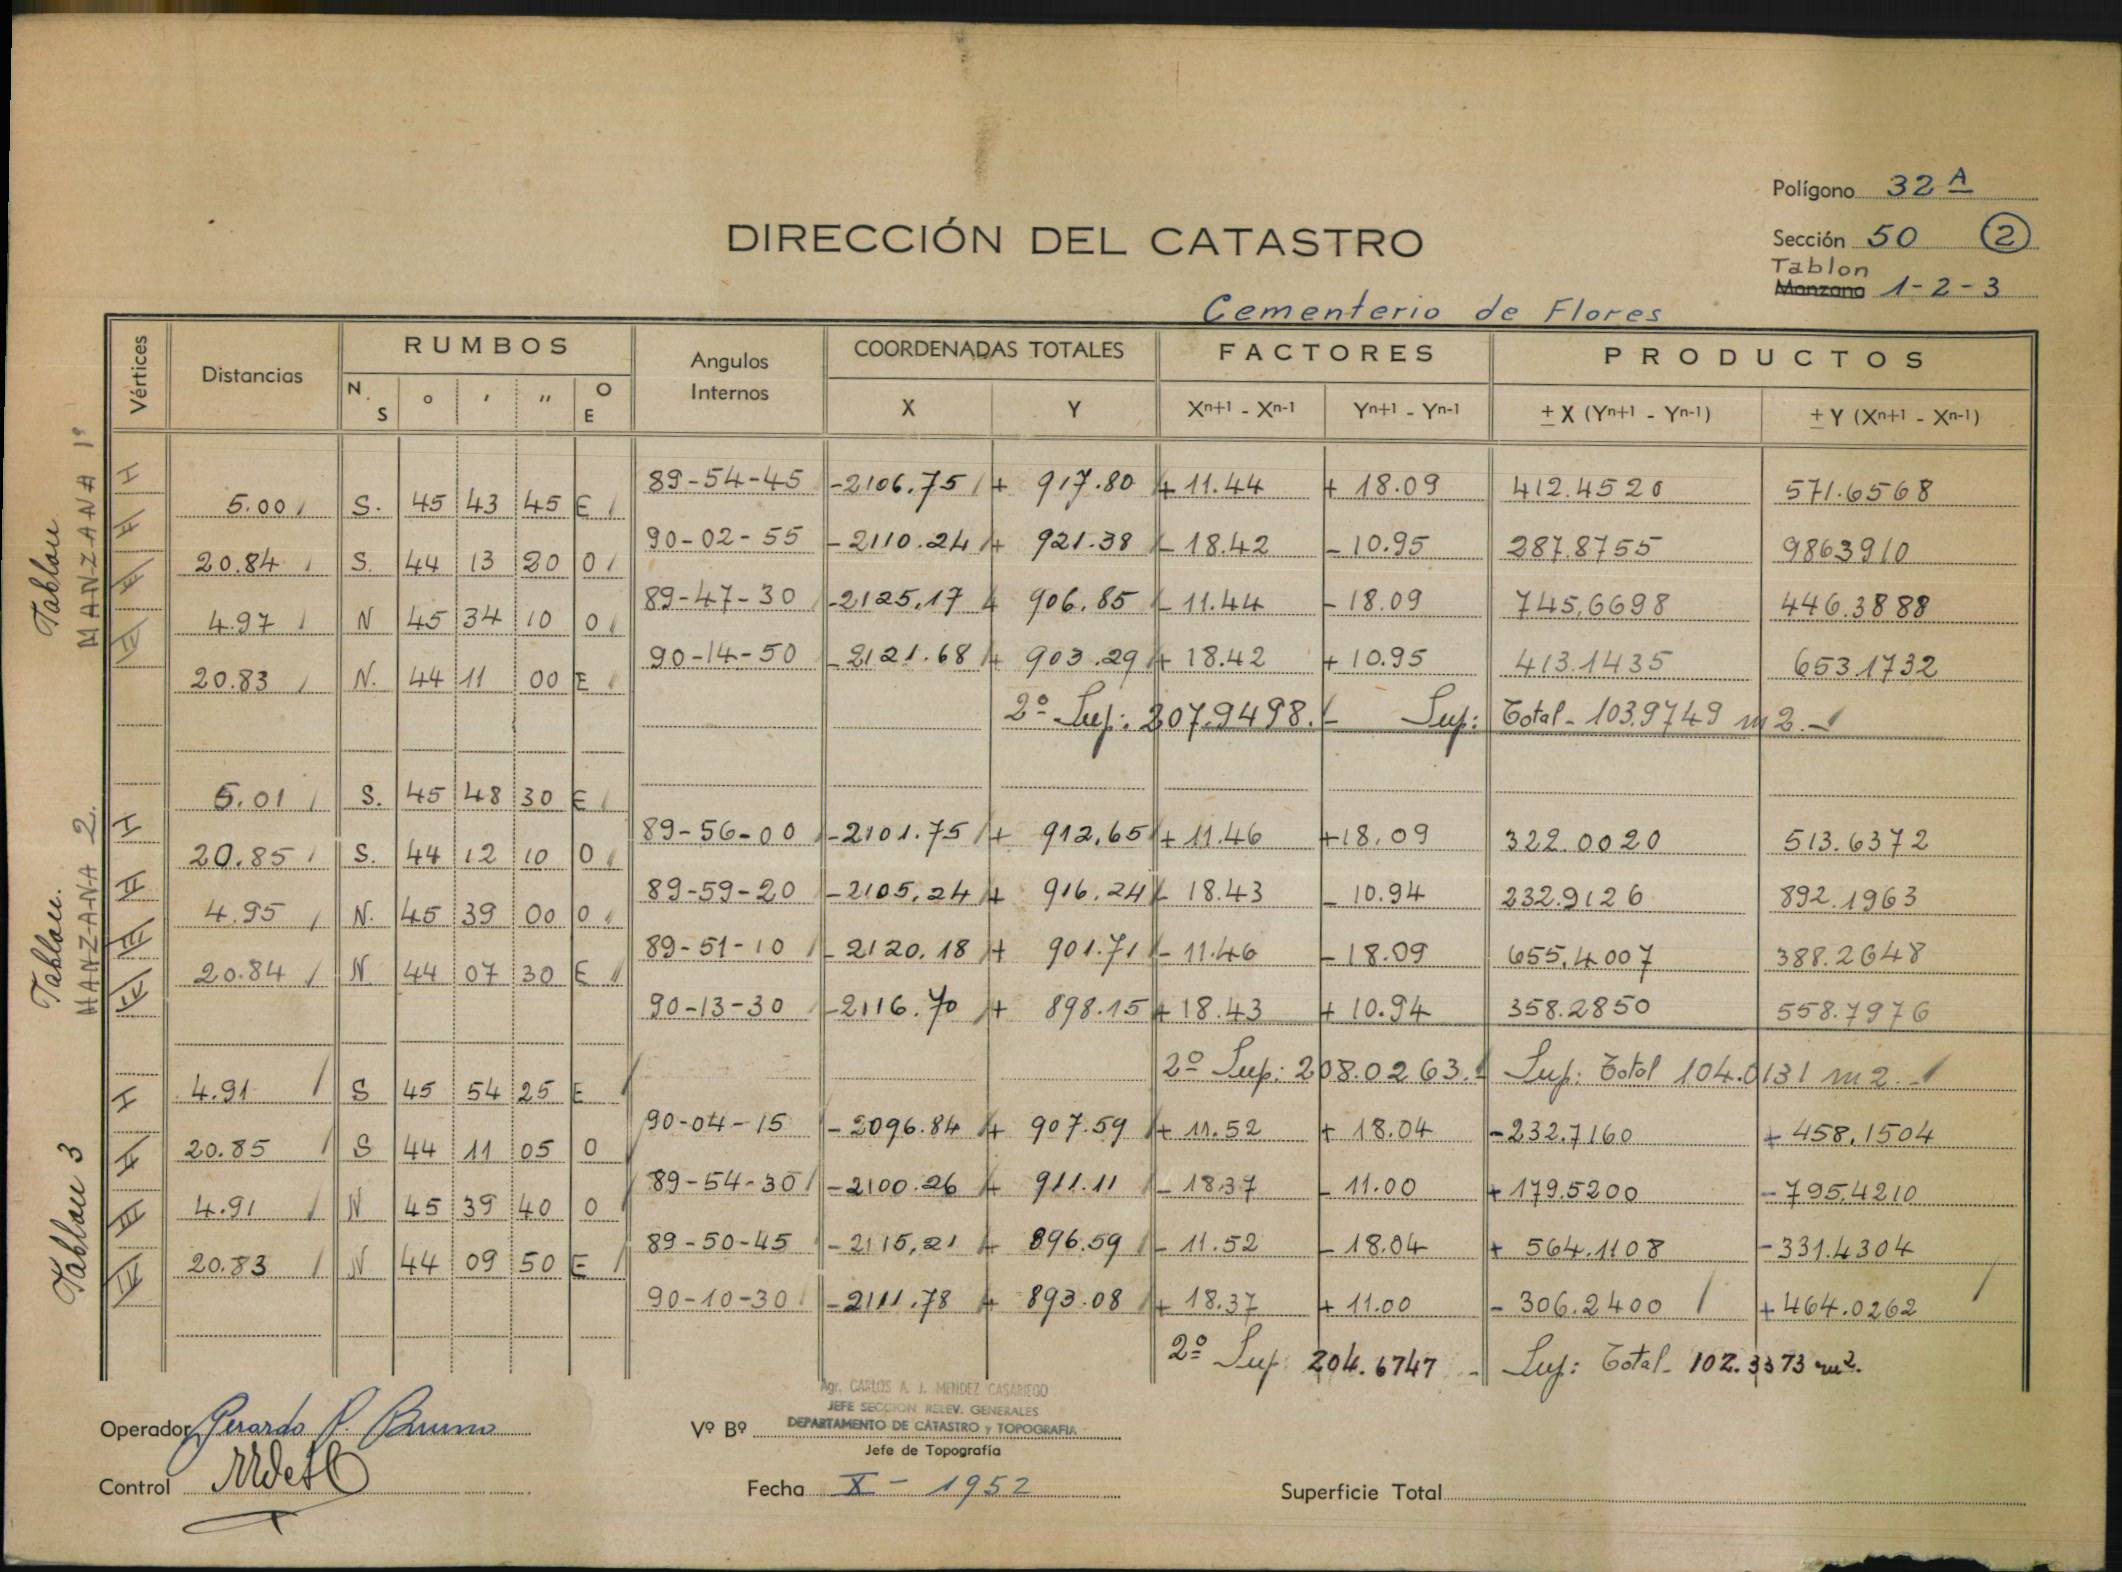 Polígono 32 A
DIRECCIÓN DEL CATASTRO
Sección 50 2
Tablon
Manzana 1-2-3
Cementerio de Flores
Vértices Distancias RUMBOS Angulos Internos COORDENADAS TOTALES FACTORES PRODUCTOS
N. S ° ' " O E X Y Xn+1 - Xn-1 Yn+1 - Yn-1 ± X (Yn+1 - Yn-1) ± Y (Xn+1 - Xn-1)
Tablon
MANZANA 1°
I 89-54-45 -2106.75 + 917.80 + 11.44 + 18.09 412.4520 571.6568
5.00 S. 45 43 45 E
II 90-02-55 - 2110.24 + 921.38 - 18.42 - 10.95 287.8755 986.3910
20.84 S. 44 13 20 O
III 89-47-30 -2125.17 + 906.85 - 11.44 - 18.09 745,6698 446.3888
4.97 N 45 34 10 O
IV 90-14-50 - 2121.68 + 903.29 + 18.42 + 10.95 413.1435 653.1732
20.83 N. 44 11 00 E
2º Sup: 207.9498.- Sup: Total - 103.9749 m2.-
Tablon.
MANZANA 2.
5.01 S. 45 48 30 E
I 89-56-00 -2101.75 + 912,65 + 11.46 +18.09 322.0020 513.6372
20.85 S. 44 12 10 O
II 89-59-20 -2105,24 + 916.24 - 18.43 - 10.94 232.9126 892.1963
4.95 N. 45 39 00 O
III 89-51-10 - 2120.18 + 901.71 - 11.46 - 18.09 655.4007 388.2648
20.84 N 44 07 30 E
IV 90-13-30 -2116.70 + 898.15 + 18.43 + 10.94 358.2850 558.7976
2º Sup: 208.0263.- Sup: Total 104.0131 m2.-
Tablon 3
4.91 S 45 54 25 E
I 90-04-15 - 2096.84 + 907.59 + 11.52 + 18.04 -232.7160 + 458.1504
20.85 S 44 11 05 O
II 89-54-30 -2100.26 + 911.11 - 18.37 - 11.00 + 179.5200 - 795.4210
4.91 N 45 39 40 O
III 89-50-45 - 2115,21 + 896.59 - 11.52 - 18.04 + 564.1108 - 331.4304
20.83 N 44 09 50 E
IV 90-10-30 -2111.78 + 893.08 + 18.37 + 11.00 - 306.2400 + 464.0262
2º Sup: 204.6747 - Sup: Total - 102.3373 m2.
Agr. CARLOS A. J. MENDEZ CASARIEGO
JEFE SECCION RELEV. GENERALES
DEPARTAMENTO DE CATASTRO y TOPOGRAFIA
Operador Gerardo P. Bruno Vº Bº
Jefe de Topografía
Control Fecha X - 1952 Superficie Total